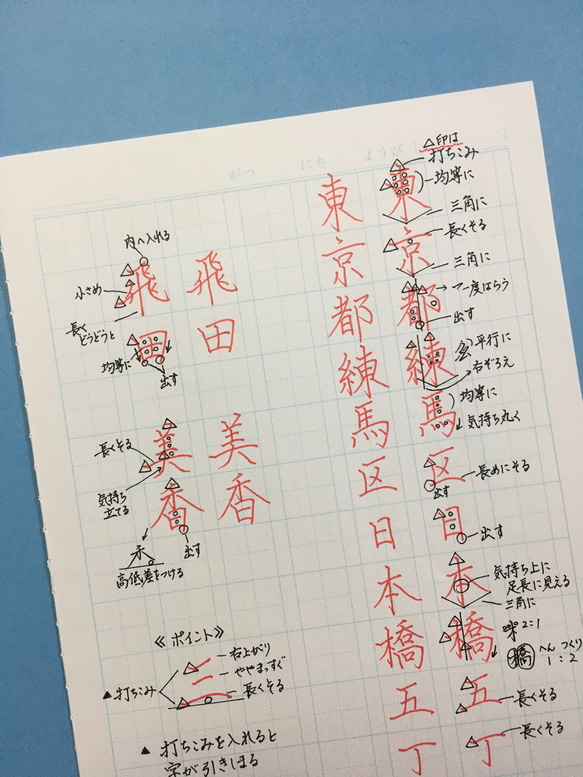 がつ にち ようび
△印は
打ちこみ
東京都練馬区日本橋五丁
東京都練馬区日本橋五丁
均等に
三角に
長くそる
三角に
一度はらう
出す
平行に
右ぞろえ
均等に
気持ち丸く
長めにそる
出す
出す
気持ち上に
足長に見える
三角に
2:1
橋
へん つくり
1:2
長くそる
長くそる
飛田
飛田
内へ入れる
小さめ
長く
どうどうと
均等に
出す
美香
美香
長くそる
気持ち
立てる
出す
高低差をつける
《ポイント》
三
右上がり
ややまっすぐ
長くそる
▲打ちこみ
▲打ちこみを入れると
字が引きしまる